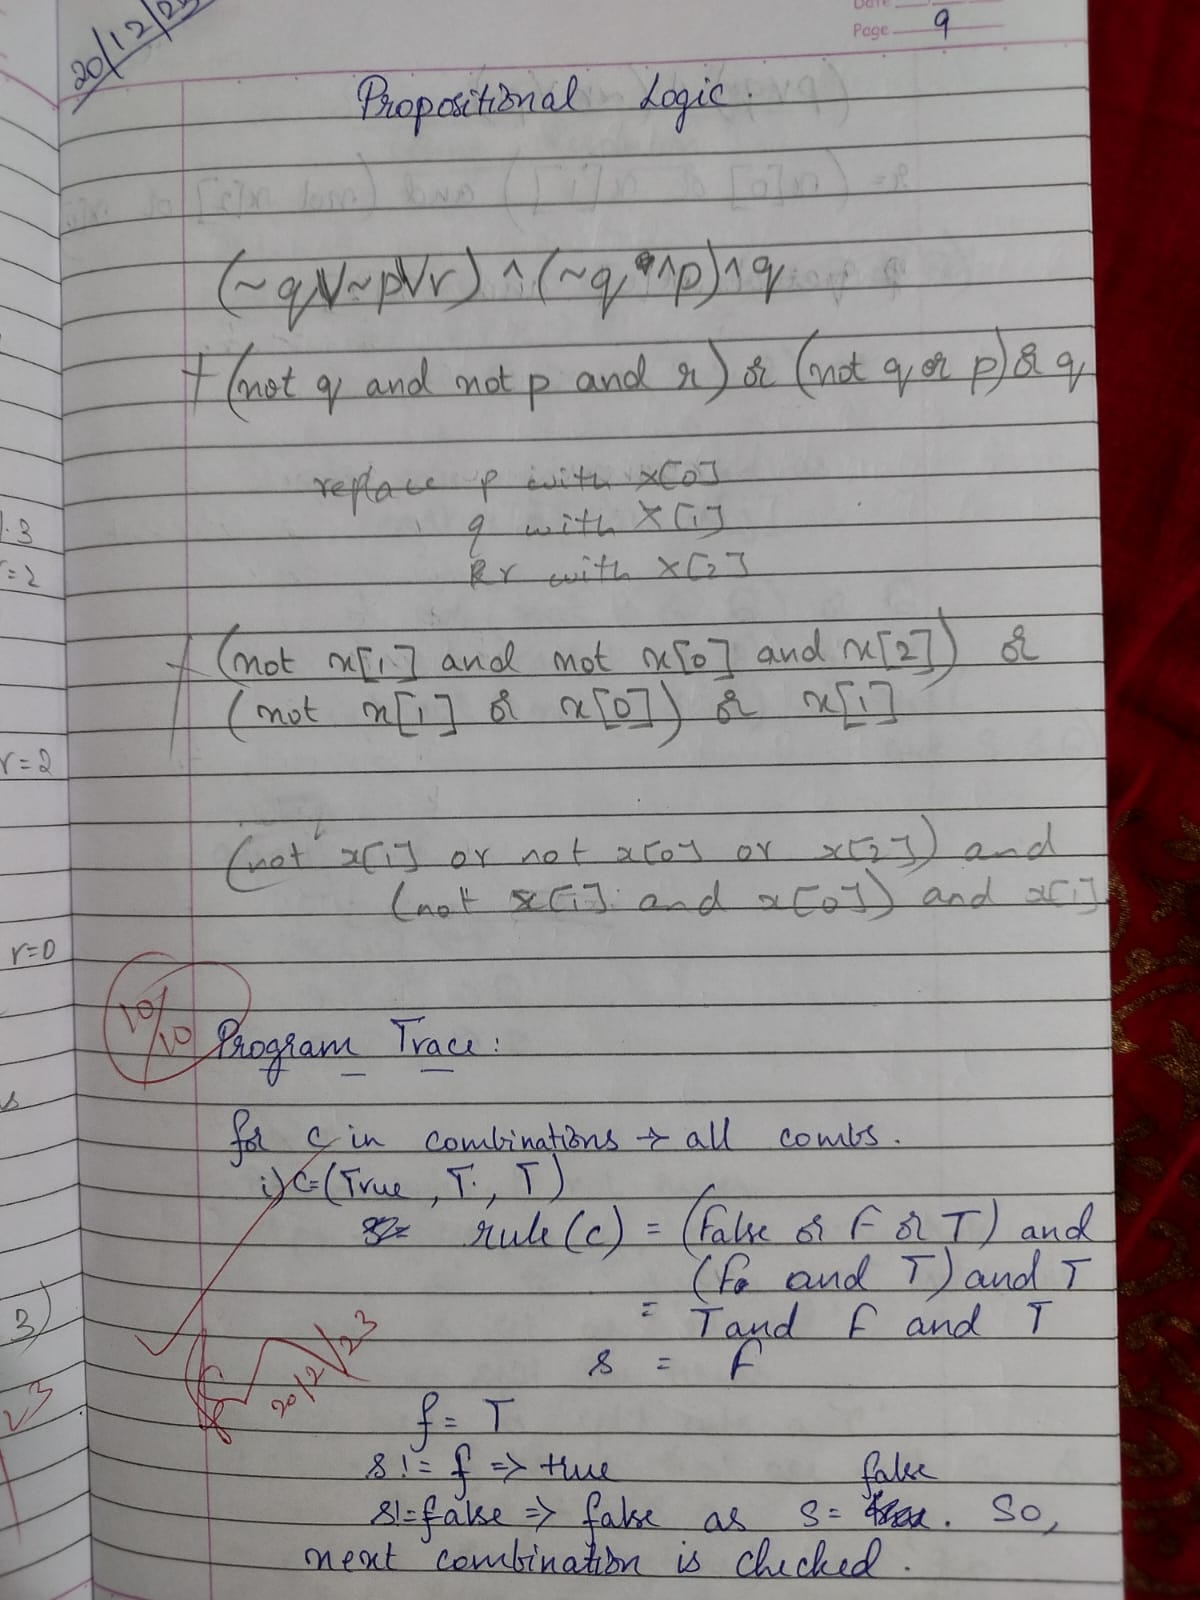 20/12/23
Date
Page 9
Propositional Logic.
(~q V ~p V r) ^ (~q ^ p) ^ q
(not q and not p and r) or (not q or p) or q
replace p with x[0]
q with x[1]
r with x[2]
(not x[1] and not x[0] and x[2]) or
(not x[1] or x[0]) or x[1]
(not x[1] or not x[0] or x[2]) and
(not x[1] and x[0]) and x[1]
10/10
Program Trace:
for c in combinations → all combs.
i) c=(True, T, T)
rule(c) = (False or F or T) and
(F and T) and T
= T and F and T
s = F
20/12/23
f = T
s != f => true
s != false => false as s = false. So,
next combination is checked.
.3
=2
r=2
r=0
s
3)